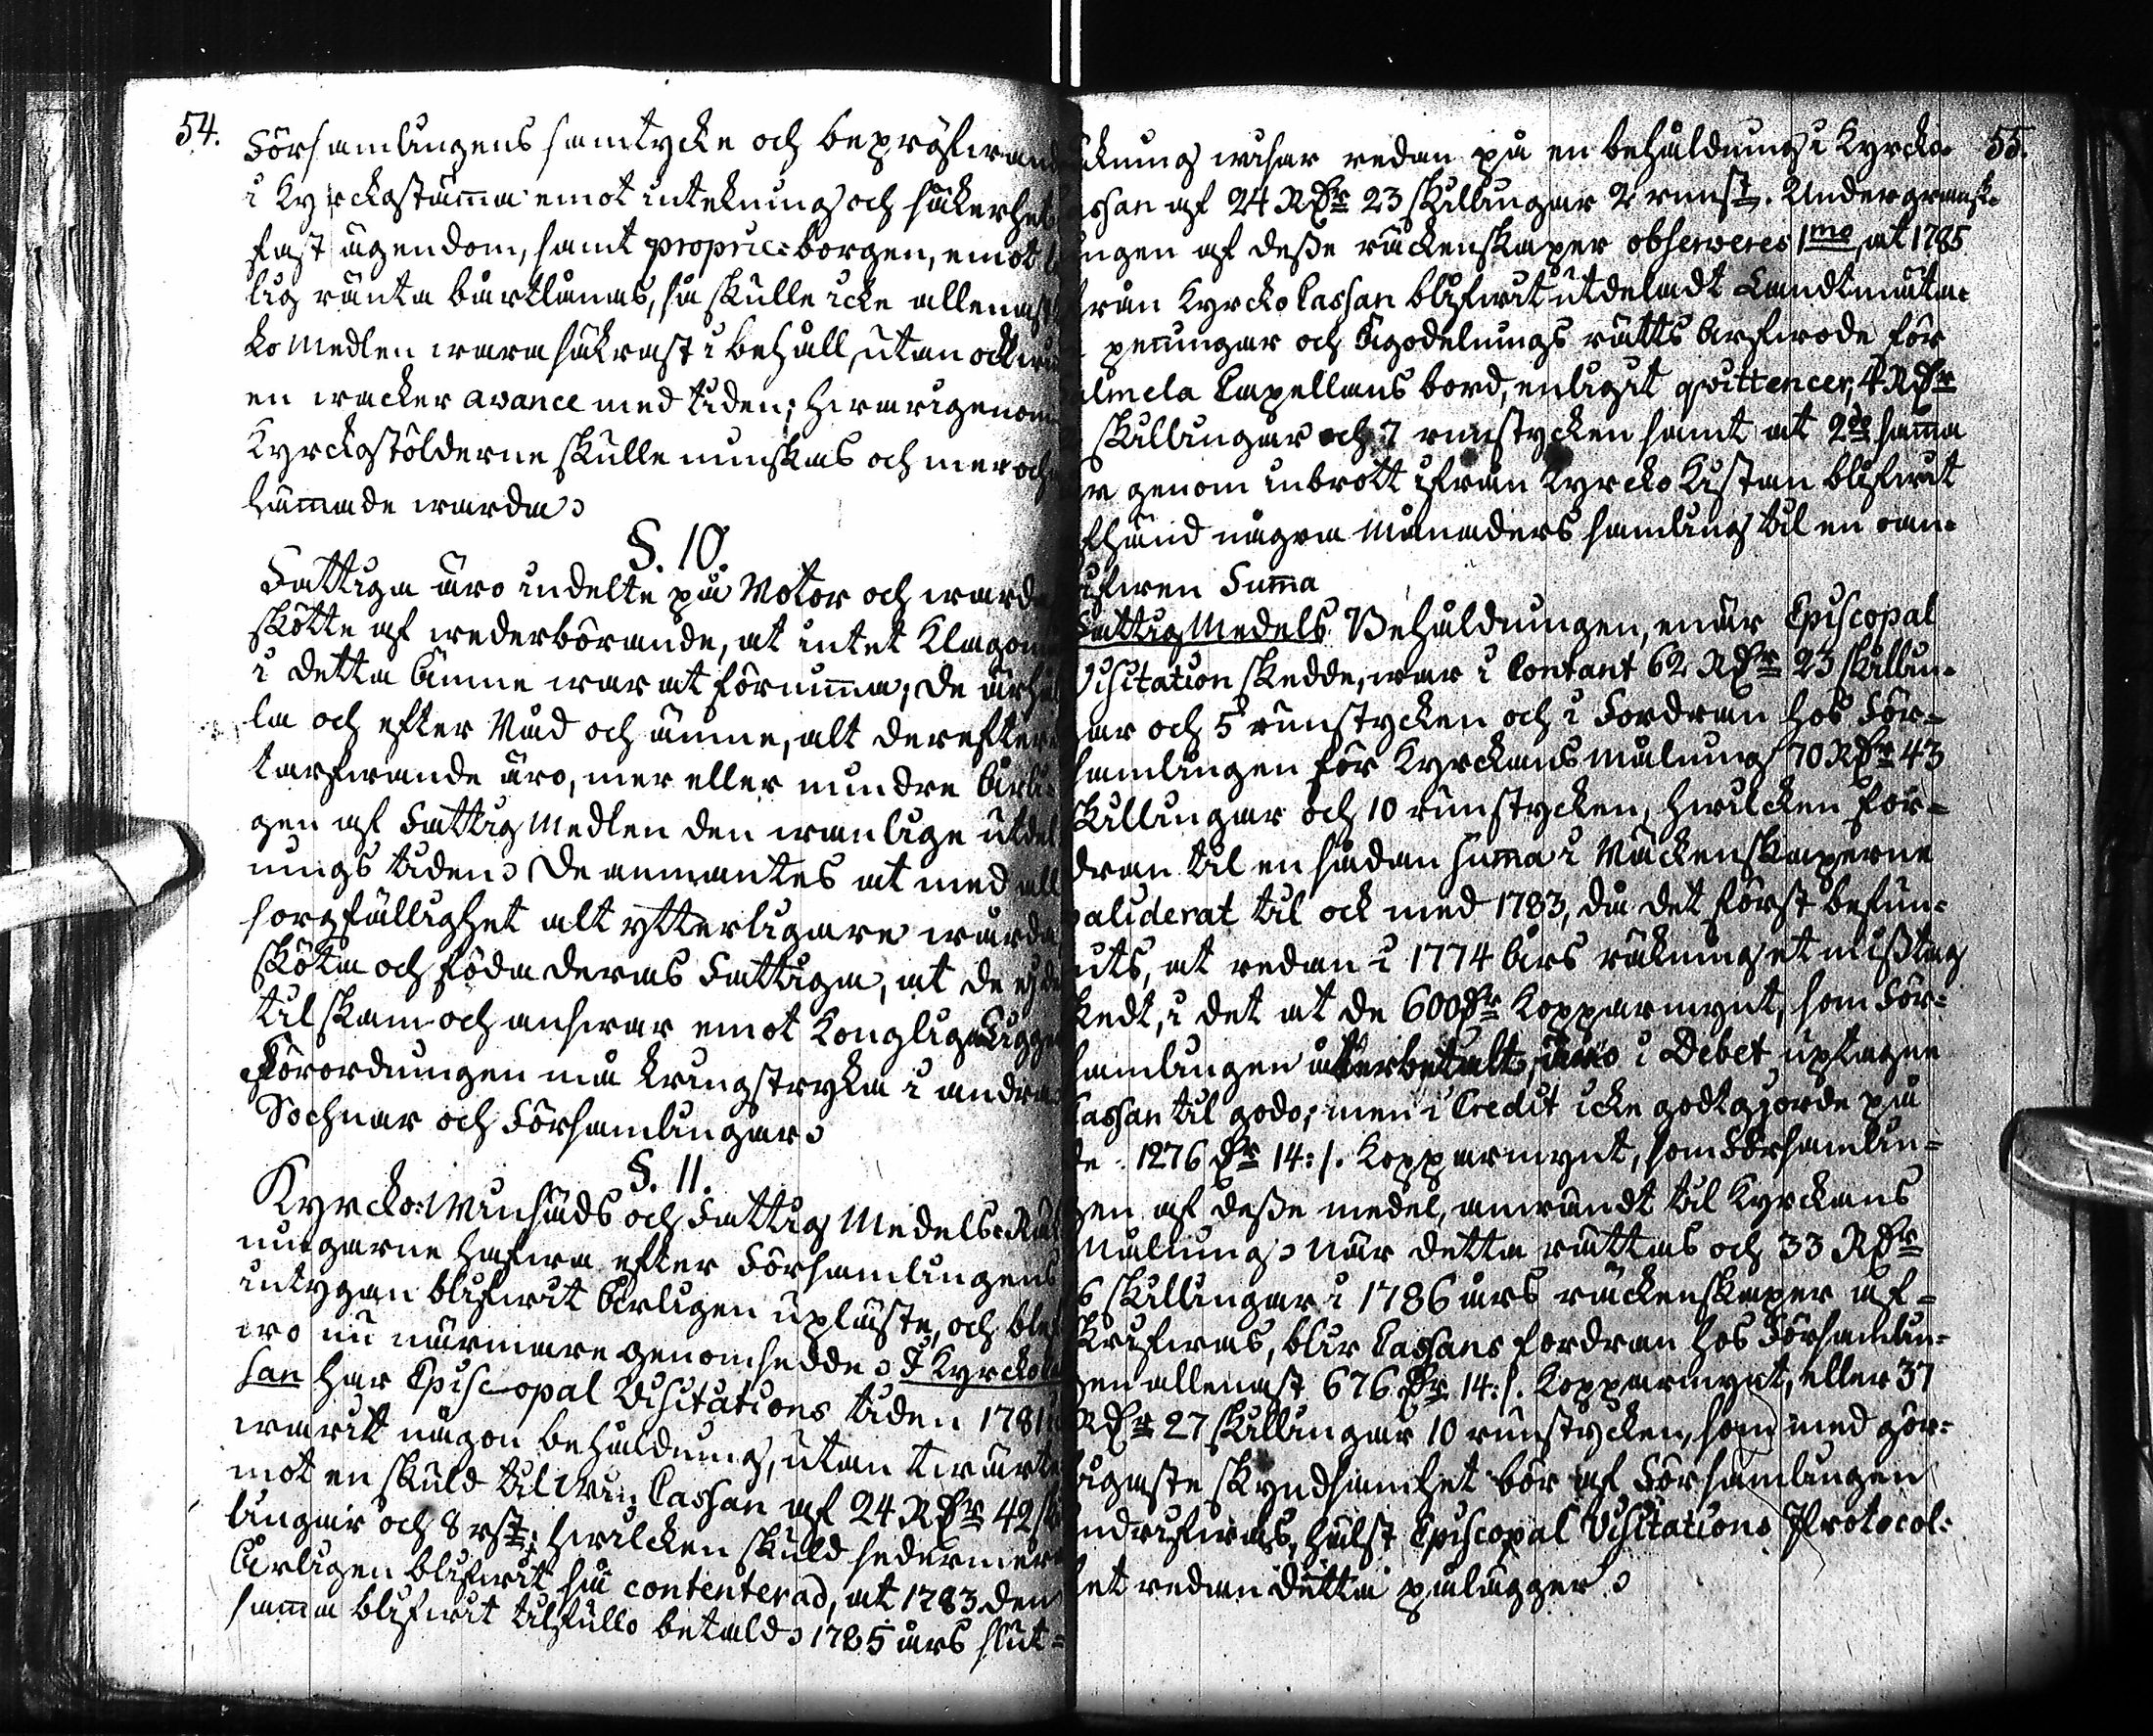 54.
Församlingens samtycke och bepröfwan
i Kyrckostämma emot intekning och säkerhet
fast ägendom, samt proprie-borgen, emot
lig ränta bårtlånas, så skulle icke allenast
ko Medlen wara säkrast i behåll, utan ock
en wacker avance med tiden; hwarigenom
Kyrckostölderne skulle minskas och mer och
hämmade warda.
§. 10.
Fattiga äro indelte på Rotor och warda
skötte af wederbörande, at intet Klagomå
i detta ämne war at förnimma; de
la och efter Råd och ämne, alt derefter
tarfwande äro, mer eller mindre årli-
gen af Fattig Medlen den wanlige utdel
nings tiden. De anmantes at med all
sorgfällighet alt ytterligare wårda
sköta och föda deras Fattiga, at de ej
til skam och answar emot Kongliga
Förordningen må kringstryka i andra
Sochnar och Församlingar.
§. 11.
Kyrcko-Winsäds och Fattig Medels Räk
ningarne hafwa efter Församlingens
intygan blifwit årligen upläste, och blef
wo nu närmare genomsedde. I Kyrcko
san har Episcopal Visitations tiden 1781
warit någon behåldning, utan twärt
mot en skuld til Win: Cassan af 24 RDr 42 sk
lingar och 8 rst; hwilcken skuld sedermer
årligen blifwit så contenterad, at 1783 den
samma blifwit tilfullo betald. 1785 års slut-
55.
ckning wisar redan på en behåldning i Kyrcko
assan af 24 RDr 23 skillingar 2 runst. Undergransk-
ingen af desse räckenskaper observeres 1mo at 1785
från Kyrcko Cassan blifwit utdeladt Landtmäta-
penningar och Ägodelnings rätts Arfwode för
Capellans bord, enligit qvittencer, 4 RDr
skillingar och 7 runstycken samt at 2do samma
genom inbrott ifrån Kyrcko Kistan blifwit
händ några Månaders samling til en oan-
gifwen Summa
Fattig Medels Behåldningen, enär Episcopal
Visitation skedde, war i Contant 62 RDr 23 skillin-
gar och 5 runstycken och i Fordran hos För-
samlingen för Kyrckans målning 70 RDr 43
skillingar och 10 runstycken, hwilcken for-
dran til en sådan summa i Räckenskaperne
validerat til ock med 1783, då det först befun-
nits, at redan i 1774 års räkning et misstag
skedt, i det at de 600 Dr Kopparmynt, som För-
samlingen återbetalt, äro i Debet uptagne
Cassan til godo; men i Credit icke godtgjorde på
de 1276 Dr 14:/. Kopparmynt, som Församlin-
gen af desse medel, anwändt til Kyrckans
Målning. När detta rättas och 33 RDr
6 skillingar i 1786 års räckenskaper af-
skrifwas, blir Cassans fordran hos Församlin-
gen allenast 676 Dr 14:/. Kopparmynt, eller 37
RDr 27 skillingar 10 runstycken, som med gör-
ligaste skyndsamhet bör af Församlingen
indrifwas, hälst Episcopal Visitations Protocol-
let redan detta pålägger.